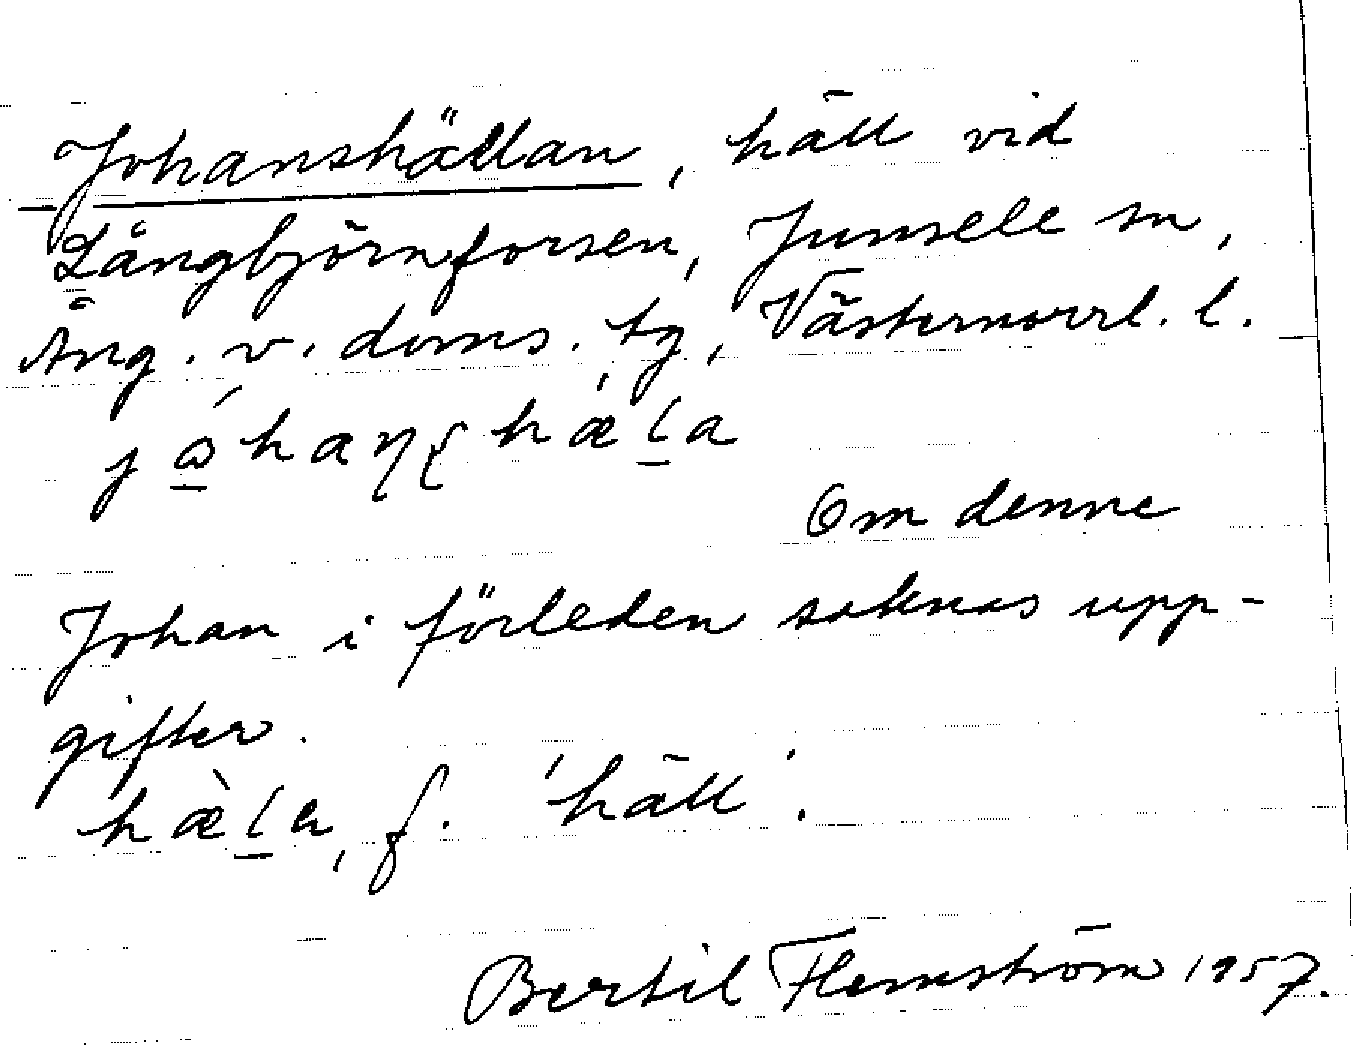 Johanshällan, häll vid
Långbjörnforsen, Junsele sn,
Ång. v. doms. tg, Västernorrl. l.
Om denne
Johan i förleden saknas upp-
gifter.
f. 'häll'.
Bertil Flemström 1957.